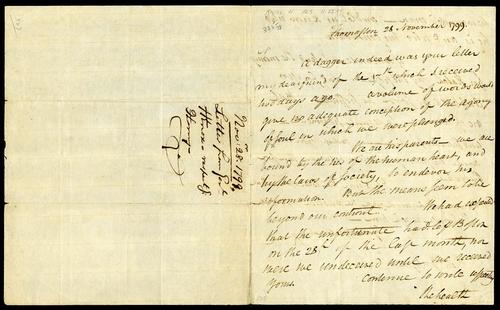 Thomaston 28 November 1799.
A dagger indeed was your letter
my dear friend of the which I received
two days ago. A volume of words would
give no adequate conception of the agony
of soul in which we were plunged.
We are his parents we are
bound by the ties of the human heart, and
by the laws of society, to endeavor his
reformation. But the means seem to be
beyond our control. We had supposed
that the unfortunate had left Boston
on the 28th of the last month, nor
were we undeceived until we received
yours. Continue to write
the health
Nov. 28. 1799
Letter from Genl
Henry